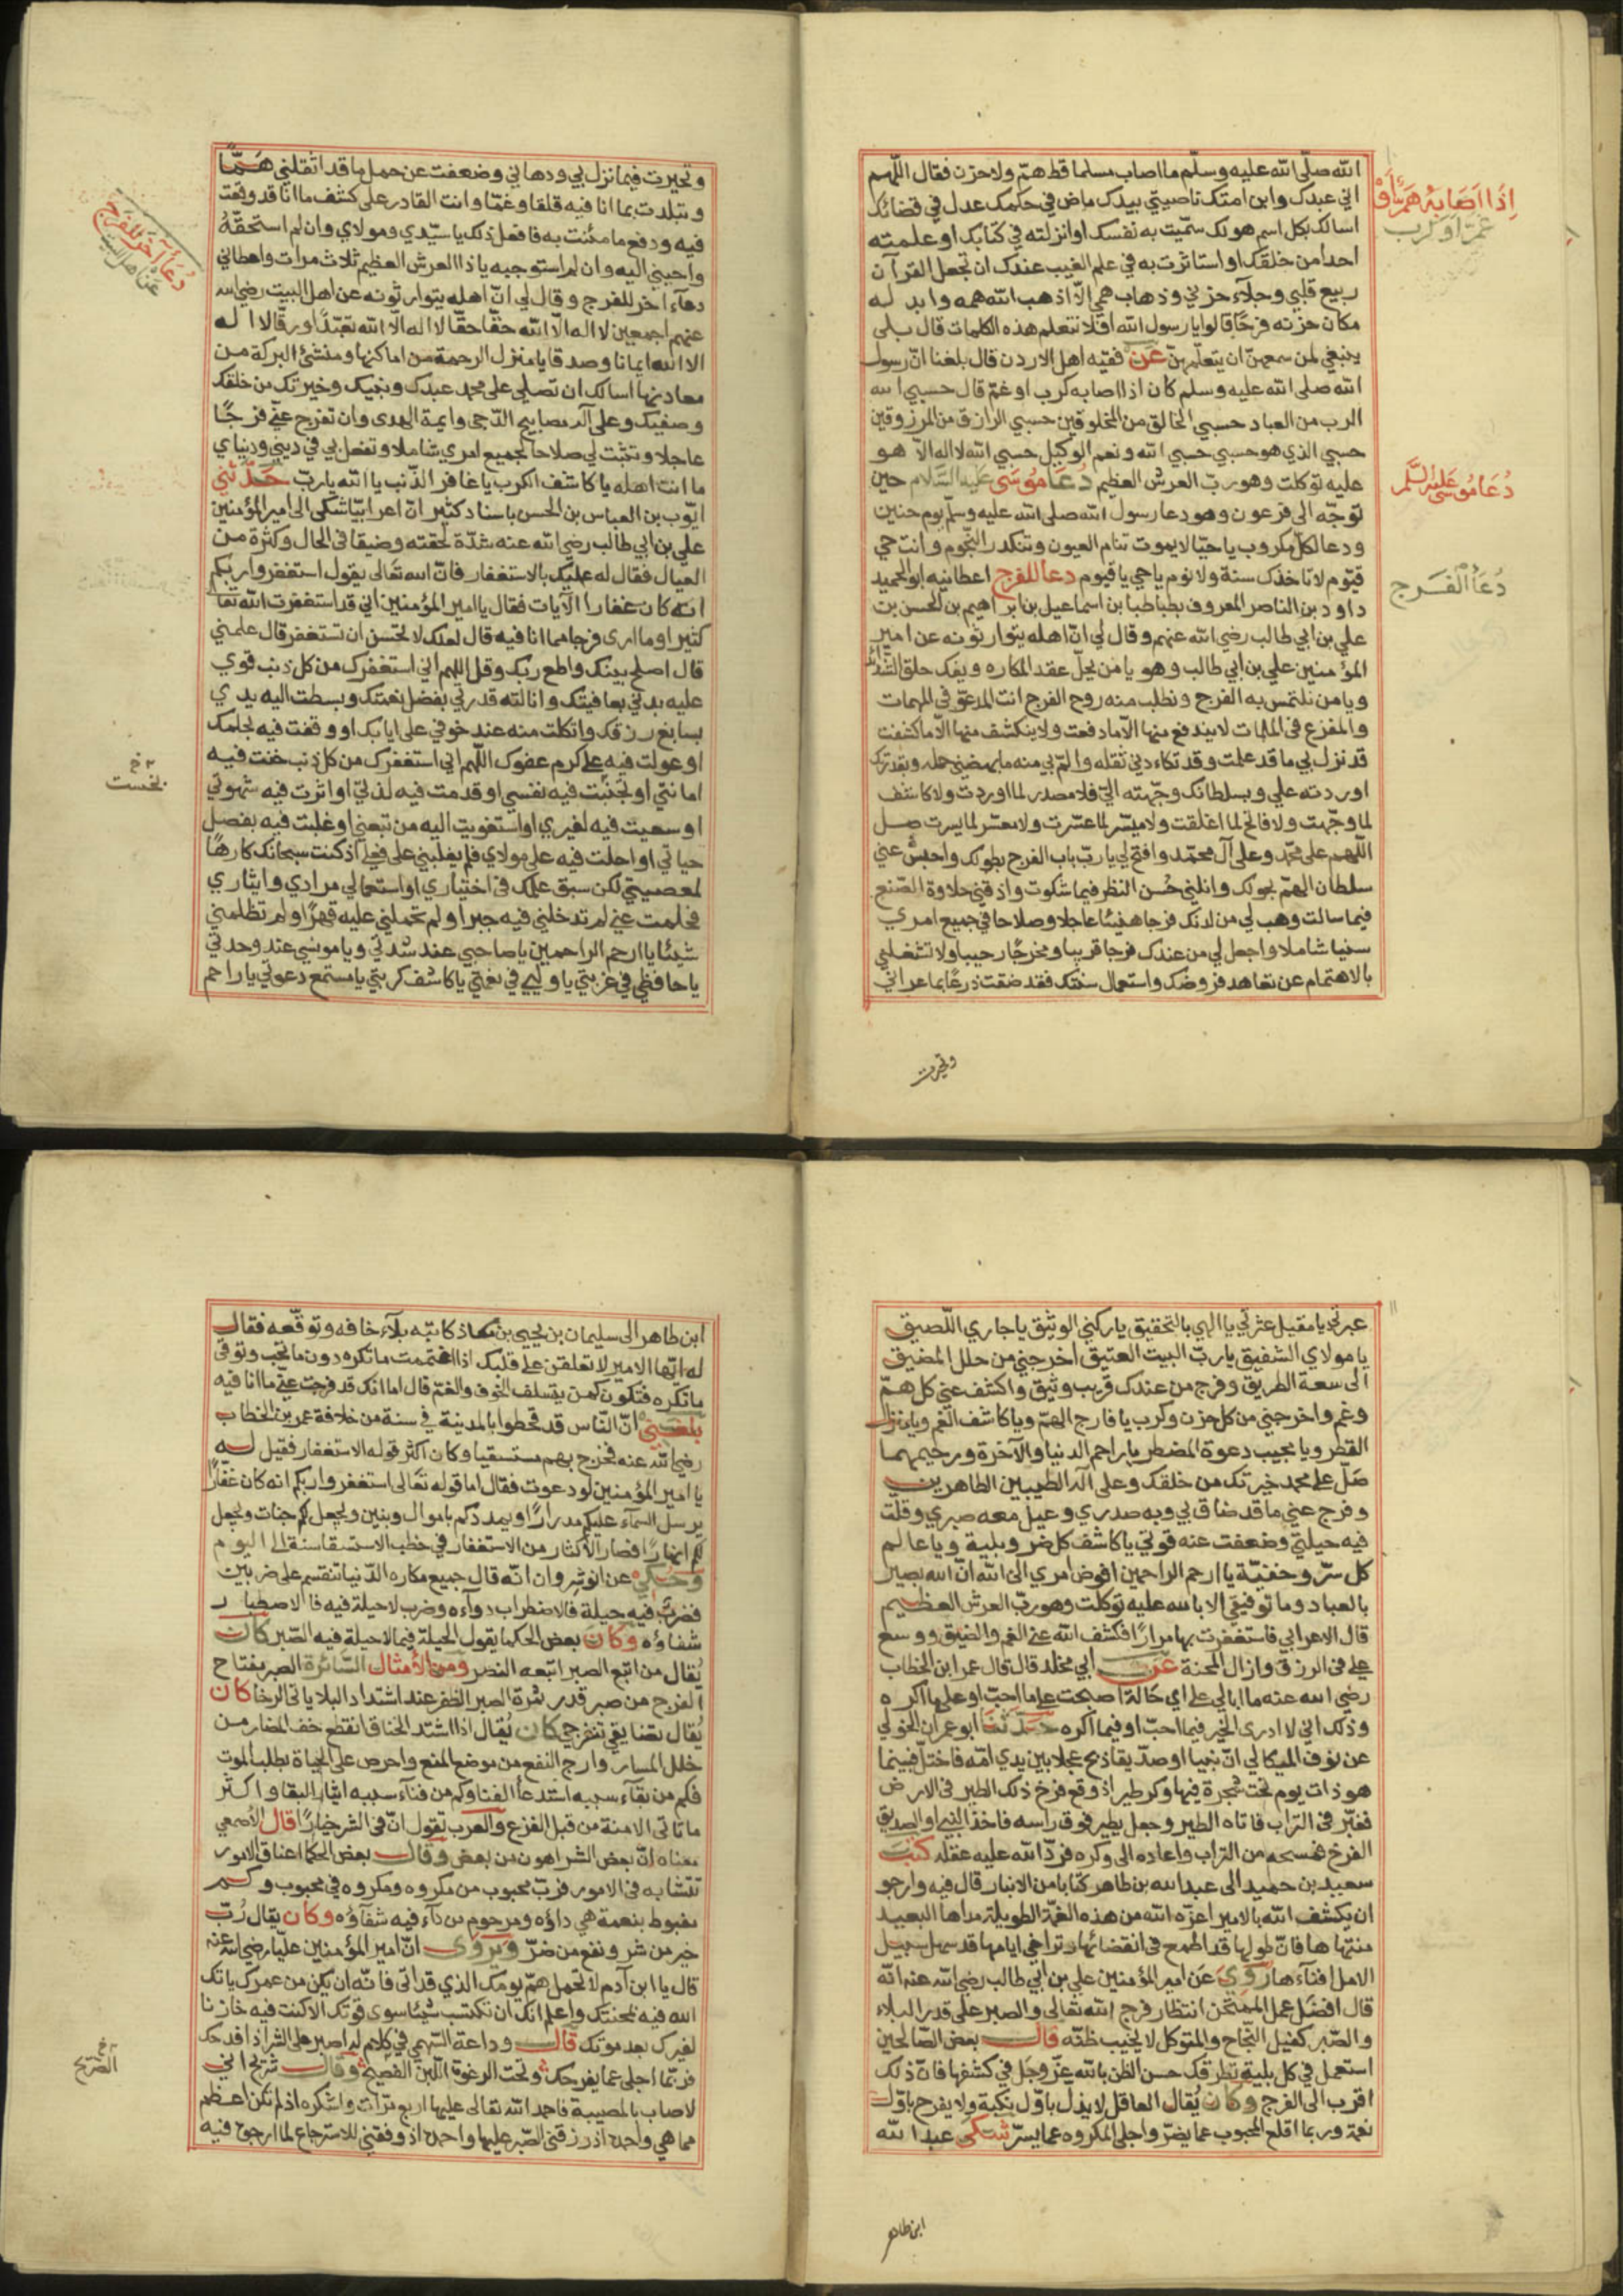 الله صلّى الله عليه وسلّم ما اصاب مسلما قط همّ ولا حزن فقال اللّهم
اني عبدك وابن امتك ناصيتي بيدك ماض في حكمك عدل في قضائك
اسالك بكل اسم هو لك سمّيت به نفسك او انزلته في كتابك او علمته
احدا من خلقك او استاثرت به في علم الغيب عندك ان تجعل القرآن
ربيع قلبي وجلآء حزني وذهاب همي الّا اذهب الله همه وابدله
مكان حزنه فرحًا قالوا يا رسول الله افلا نتعلم هذه الكلمات قال بلى
ينبغي لمن سمعهنّ ان يتعلّمهنّ عن فقيه اهل الاردن قال بلغنا انّ رسول
الله صلى الله عليه وسلم كان اذا اصابه كرب او غمّ قال حسبي الله
الرب من العباد حسبي الخالق من المخلوقين حسبي الرازق من المرزوقين
حسبي الذي هو حسبي حسبي الله ونعم الوكيل حسبي الله لا اله الّا هو
عليه توكلت وهو ربّ العرش العظيم دُعَا مُوسَى عَليه السَّلام حين
توجّه الى فرعون وهو دعا رسول الله صلى الله عليه وسلّم يوم حنين
ودعا لكل مكروب يا حيّا لا يموت تنام العيون وتنكدر النّجوم وانت حي
قيّوم لا تاخذك سنة ولا نوم يا حي يا قيوم دعا للفرج اعطانيه ابو الحميد
داود بن الناصر المعروف بطباطبا بن اسماعيل بن ابراهيم بن الحسن بن
علي بن ابي طالب رضي الله عنهم وقال لي انّ اهله يتوارثونه عن امير
المؤمنين علي بن ابي طالب وهو يا من يحلّ عقد المكاره ويفك حلق الشدائد
ويا من نلتمس به الفرج ونطلب منه روح الفرج انت المدعوّ في المهمات
والمفزع في الملمات لا يندفع منها الّا ما دفعت ولا ينكشف منها الّا ما كشفت
قد نزل بي ما قد علمت وقد تكاءدني ثقله والمّ بي منه ما بهضني حمله وبقدرتك
اوردته علي وبسلطانك وجّهته اليّ فلا مصدر لما اوردت ولا كاشف
لما وجّهت ولا فاتح لما اغلقت ولا ميسّر لما عسّرت ولا معسّر لما يسرت صل
اللّهم على محمّد وعلى آل محمّد وافتح لي يا ربّ باب الفرج بطولك واحبس عني
سلطان الهمّ بحولك وانلني حُسن النظر فيما شكوت واذقني حلاوة الصّنع
فيما سالت وهب لي من لدنك فرجا هنيئا عاجلا وصلاحا في جميع امري
سنيا شاملا واجعل لي من عندك فرجا قريبا ومخرجًا رحيبا ولا تشغلني
بالاهتمام عن تعاهد فروضك واستعمال سنتك فقد ضقت ذرعًا بما عراني
وتحيرت
اِذَا اَصَابَهُ هَمّ اَوْ
غَمّ اَوْ كَرب
دُعَا مُوسَى عَليْهِ السَّلَم
دُعَاُ الفَرَج
وتحيرت فيما نزل بي ودهاني وضعفت عن حمل ما قد اثقلني هَمًّا
وتبلدت بما انا فيه قلقا وغمّا وانت القادر على كشف ما انا قد وقعت
فيه ودفع ما منُت به فافعل ذلك يا سيّدي ومولاي وان لم استحقّهُ
واجبني اليه وان لم استوجبه يا ذا العرش العظيم ثلاث مرات واعطاني
دعآء آخر للفرج وقال لي انّ اهله يتوارثونه عن اهل البيت رضي الله
عنهم اجمعين لا اله الّا الله حقّا حقّا لا اله الّا الله تعبّدًا ورقّا لا اله
الا الله ايمانا وصدقا يا منزل الرحمة من اماكنها ومنشئ البركة من
معادنها اسالك ان تصلي على محمد عبدك ونبيك وخيرتك من خلقك
وصفيك وعلى آله مصابيح الدّجى وايمة الهدى وان تفرج عنّي فرجًا
عاجلا وتثبت لي صلاحا لجميع امري شاملا وتفعل بي في ديني ودنياي
ما انت اهله يا كاشف الكرب يا غافر الذّنب يا الله يا ربّ حَدّثني
ايّوب بن العباس بن الحسن باسناد كثير انّ اعرابيّا شكى الى امير المؤمنين
علي بن ابي طالب رضي الله عنه شدّة لحقته وضيقا في الحال وكثرة من
العيال فقال له عليك بالاستغفار فانّ الله تعَالى يقول استغفروا ربكم
انه كان غفارا الآيات فقال يا امير المؤمنين اني قد استغفرت الله تعا
كثيرا وما ارى فرجا مما انا فيه قال لعلك لا تحسن ان تستغفر قال علمني
قال اصلح بينك واطع ربك وقل اللهم اني استغفرك من كل ذنب قوي
عليه بدني بعافيتك ونالته قدرتي بفضل نعمتك وبسطت اليه يدي
بسابغ رزقك واتكلت منه عند خوفي على ايابك او وقفت فيه بحلمك
او عولت فيه على كرم عفوك اللّهم اني استغفرك من كل ذنب خنت فيه
امانتي او تجنبت فيه نفسي او قدمت فيه لذتي او اثرت فيه شهوتي
او سعيت فيه لغيري او استغويت اليه من تبعني او غلبت فيه بفضل
حياتي او احلت فيه على مولاي فلم يغلبني على فعلي اذ كنت سبحانك كارهًا
لمعصيتي لكن سبق علمك في اختياري او استعمالي مرادي وايثاري
فحلمت عني لم تدخلني فيه جبرا ولم تحملني عليه قهرًا ولم تظلمني
شيئا يا ارحم الراحمين يا صاحبي عند شدتي ويا مونسي عند وحدتي
يا حافظي في غربتي يا وليي في نعمتي يا كاشف كربتي يا مستمع دعوتي يا راحم
دُعَا آخَر لِلفَرَج
عن اهل البيت
نجست
عبرتي يا مقيل عثرتي يا الهي بالتحقيق يا ركني الوثيق يا جاري اللّصيق
يا مولاي الشفيق يا ربّ البيت العتيق اخرجني من حلل المضيق
الى سعة الطريق وفرج من عندك قريب وثيق واكشف عني كل همّ
وغم واخرجني من كل حزن وكرب يا فارج الهمّ ويا كاشف الغّم ويا منزل
القطر ويا مجيب دعوة المضطر يا راحم الدنيا والآخرة ورحيمهما
صَلّ على محمد خيرتك من خلقك وعلى آله الطيبين الطاهرين
وفرج عني ما قد ضاق بي وبه صدري وعيل معه صبري وقلت
فيه حيلتي وضعفت عنه قوتي يا كاشف كل ضر وبلية ويا عالم
كل سرّ وخفيّة يا ارحم الراحمين افوض امري الى الله انّ الله بصير
بالعباد وما توفيقي الا بالله عليه توكلت وهو ربّ العرش العظيم
قال الاعرابي فاستغفرت بها مرارًا فكشف الله عني الغم والضيق ووسع
علي في الرزق وازال المحنة عَن ابي مخلد قال قال عمر ابن الخطاب
رضي الله عنه ما ابالي على اي حَالة اصبحت على ما احبّ او على ما اكره
وذلك اني لا ادرى الخير فيما احبّ او فيما اكره حَدّثنَا ابو عمران الخولي
عن نوف الميكالي انّ نبيا او صدّيقا ذبح عجلا بين يدي امّه فاختلّ فبينما
هو ذات يوم تحت شجرة فيها وكر طير اذ وقع فرخ ذلك الطير في الارض
فغبّر في التراب فاتاه الطير وجعل يطير فوق راسه فاخذ النبي او الصديق
الفرخ فمسحه من التراب واعاده الى وكره فردّ الله عليه عقله كتبَ
سعيد بن حميد الى عبد الله بن طاهر كتابا من الانبار قال فيه وارجو
ان يكشف الله بالامير اعزّه الله من هذه الغمّة الطويلة مداها البعيد
منتهاها فانّ طولها قد اطمع في انقضائها وتراخي ايامها قد سهل سبيل
الامل افنآءها رُوِيَ عن امير المؤمنين علي بن ابي طالب رضي الله عنه انّه
قال افضَل عمل الممتحن انتظار فرج الله تعالى والصبر على قدر البلاء
والصّبر كفيل النّجاح والمتوكل لا يخيب ظنّه قال بعض الصّالحين
استعمل في كل بلية تطرقك حسن الظن بالله عزّ وجَل في كشفها فانّ ذلك
اقرب الى الفرج وكان يُقال العاقل لا يذل باوّل نكبة ولا يفرح باوّل
نعمة وربما اقلع المحبوب عما يضرّ واجلى المكروه عما يسرّ شكى عبد الله
ابن طاهر
ابن طاهر الى سليمان بن يحيى بن معاذ كاتبه بلآء خافه وتوقّعه فقال
له ايّها الامير لا تعلقن على قلبك اذا اغتممت ما تكره دون ما تحب وتوقي
ما تكره فتكون كمن يتسلف الخوف والغمّ قال اما انك قد فرجت عنّي ما انا فيه
بلغني انّ النّاس قد قحطوا بالمدينة في سنة من خلافة عمر بن الخطاب
رضي الله عنه فخرج بهم مستسقيا وكان اكثر قوله الاستغفار فقيل له
يا امير المؤمنين لو دعوت فقال اما قوله تعَالى استغفروا ربكم انه كان غفّارًا
يرسل السّمآء عليكم مدرارًا ويمددكم باموال وبنين ويجعل لكم جنات ويجعل
لكم انهارًا فصار الاكثار من الاستغفار في خطب الاستسقا سنة الى اليوم
وَحُكي عن انوشروان انّه قال جميع مكاره الدّنيا تنقسم على ضربين
فضربٌ فيه حيلة فالاضطراب دوآءه وضرب لا حيلة فيه فالاصطبار
شفاؤه وكان بعض الحكما يقول الحيلة فيما لا حيلة فيه الصّبر كان
يُقال من اتبع الصبر اتبعه النصر ومن الأمثال السّائرة الصبر مفتاح
الفرج من صبر قدر ثمرة الصبر الظفر عند اشتداد البلا ياتى الرخا كان
يُقال تضايقي تنفرجي كان يُقال اذا اشتد الخناق انقطع خف المضار من
خلل المسار وارج النفع من موضع المنع واحرص على الحياة بطلب الموت
فكم من بقآء سببه استدعآ الفنا وكم من فنآء سببه ايثار البقا واكثر
ما تاتي الامنة من قبل الفزع والعرب تقول انّ في الشر خيارًا قال الأصمعي
معناه انّ بعض الشر اهون من بعض وقال بعض الحكما اعناق الامور
تتشابه في الامور فربّ محبوب من مكروه ومكروه في محبوب وكم
مغبوط بنعمة هي داؤه ومرحوم من دآء فيه شفآؤه وكان يقال رُبّ
خير من شر ونفع من ضرّ ويروى انّ امير المؤمنين عليّا رضي الله عنه
قال يا ابن آدم لا تحمل همّ يومك الذي قد اتى فانّه ان يكن من عمرك ياتك
الله فيه بمحنتك واعلم انك ان تكتسب شيئا سوى قوتك الا كنت فيه خازنا
لغيرك بعد موتك قال وداعة السّهمي في كلام له اصبر على الشر اذا فدحك
فربّما اجلى عما يفرحك وتحت الرغوة اللّبن الفصيح وقال شريح اني
لاصاب بالمصيبة فاحمد الله تعَالى عليها اربع مرّات واشكره اذ لم تكن اعظم
مما هي واحمده اذ رزقني الصّبر عليها واحمده اذ وفقني للاسترجاع لما ارجو فيه
الصّريح